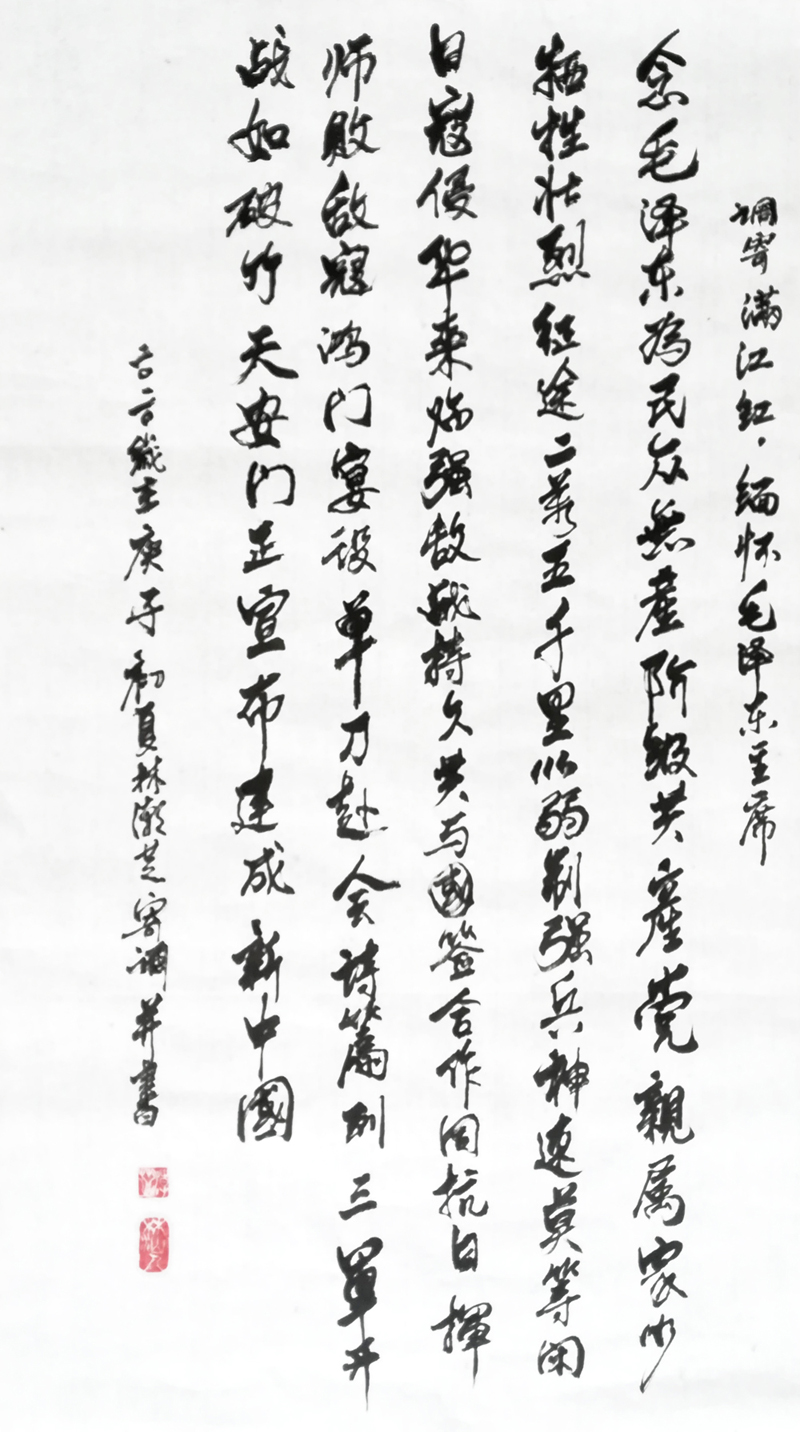 调寄满江红·缅怀毛泽东主席
念毛泽东为民众無產阶级共產党親属家少
牺牲壮烈征途二萬五千里以弱制强兵神速莫等闲
日寇侵华来临强敌战持久共与國签合作同抗日揮
师败敌寇鸿门宴设单刀赴会詩篇列三軍井
战如破竹天安门上宣布建成新中國
岁在庚子初夏林潮芝寄调并書